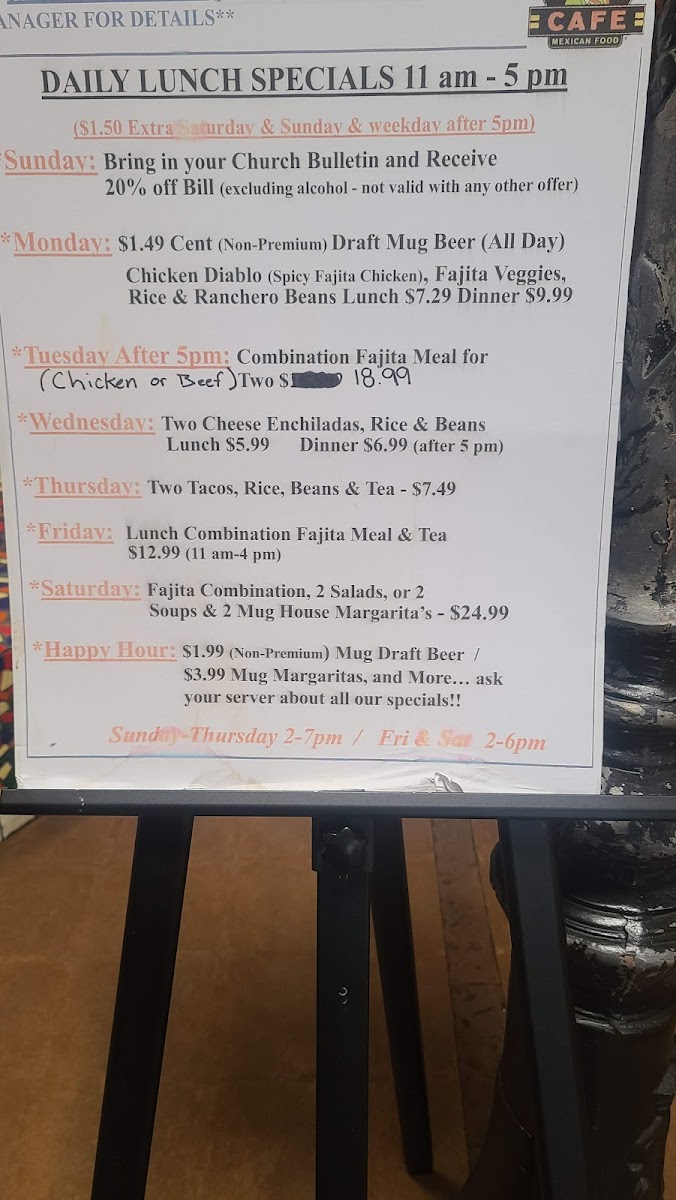 ANAGER FOR DETAILS**
CAFE
MEXICAN FOOD
DAILY LUNCH SPECIALS 11 am - 5 pm
($1.50 Extra Saturday & Sunday & weekday after 5pm)
Sunday: Bring in your Church Bulletin and Receive
20% off Bill (excluding alcohol - not valid with any other offer)
*Monday: $1.49 Cent (Non-Premium) Draft Mug Beer (All Day)
Chicken Diablo (Spicy Fajita Chicken), Fajita Veggies,
Rice & Ranchero Beans Lunch $7.29 Dinner $9.99
*Tuesday After 5pm: Combination Fajita Meal for
(Chicken or Beef) Two $ 18.99
*Wednesday: Two Cheese Enchiladas, Rice & Beans
Lunch $5.99 Dinner $6.99 (after 5 pm)
*Thursday: Two Tacos, Rice, Beans & Tea - $7.49
*Friday: Lunch Combination Fajita Meal & Tea
$12.99 (11 am-4 pm)
*Saturday: Fajita Combination, 2 Salads, or 2
Soups & 2 Mug House Margarita's - $24.99
*Happy Hour: $1.99 (Non-Premium) Mug Draft Beer /
$3.99 Mug Margaritas, and More... ask
your server about all our specials!!
Sunday-Thursday 2-7pm / Fri & Sat 2-6pm